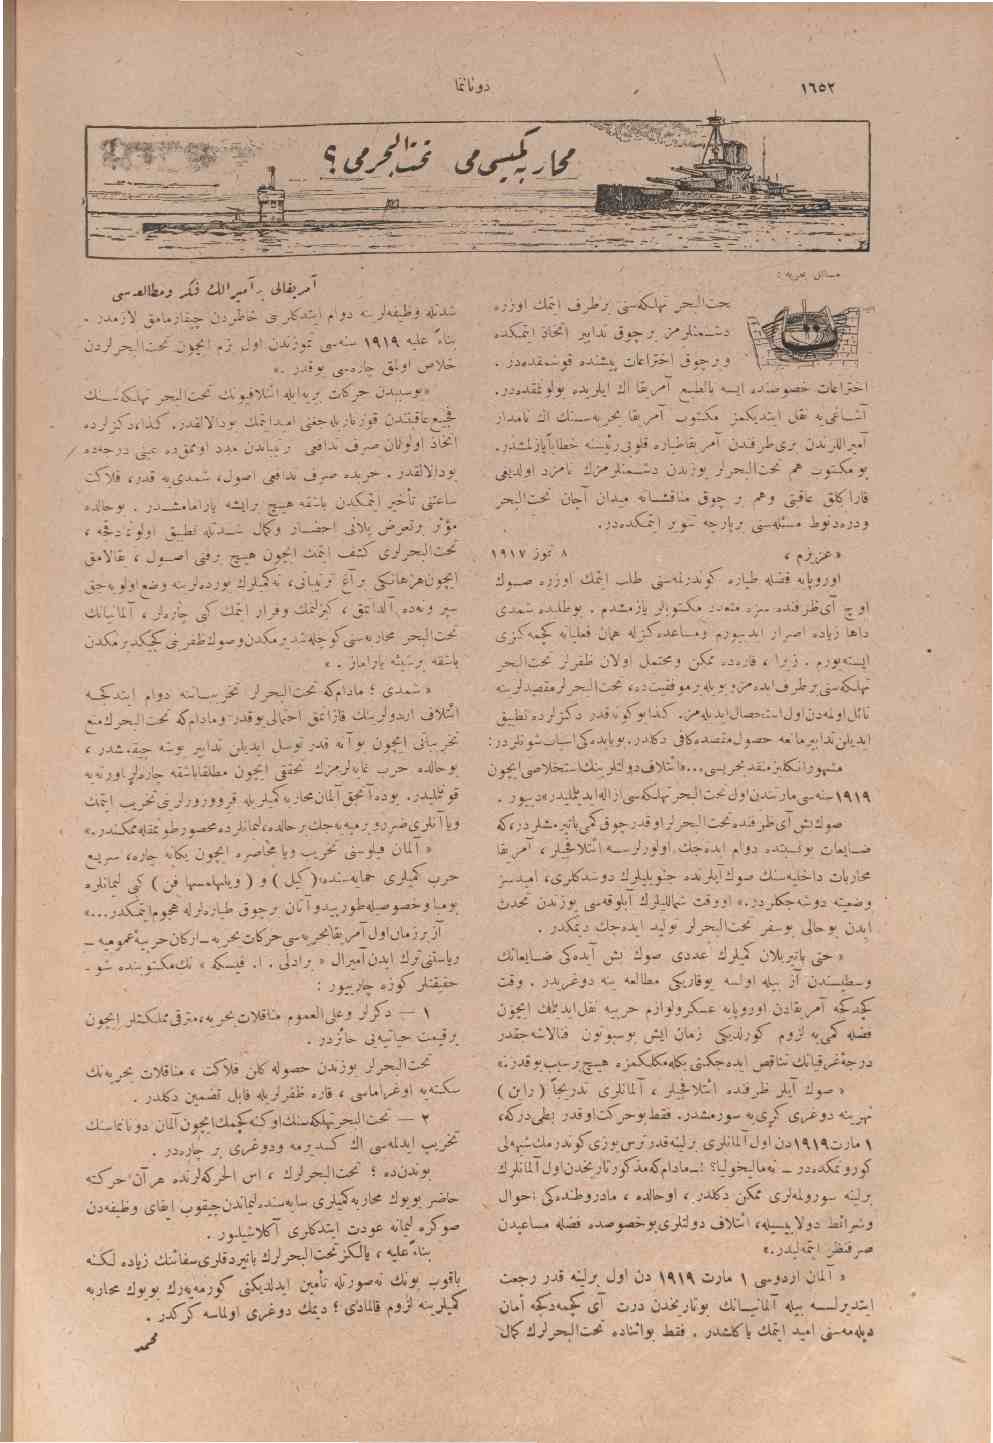 ١٦٥٢
دونانما
محاربه كميسى مى تحت‌البحر مى ؟
مسائل بحريه :
تحت‌البحر تهلكه‌سنى برطرف ايتمك اوزره
دشمنلرمز برچوق تدابير اتخاذ ايتمكده
و برچوق اختراعات پيشنده قوشمقده‌در .
اختراعات خصوصنده ايسه بالطبع آمريقا اك ايلريده بولونمقده‌در.
آشاغى‌يه نقل ايتديكمز مكتوب آمريقا بحريه‌سنك اك نامدار
آميراللرندن برى طرفندن آمريقا طياره قلوبى رئيسنه خطاباً يازلمشدر.
بو مكتوب هم تحت‌البحرلر يوزندن دشمنلرمزك نامزد اولديغى
قارا كلق عاقبتى وهم برچوق مناقشاته ميدان آچان تحت‌البحر
ودره‌دنوط مسئله‌سنى بر پارچه تنوير ايتمكده‌در.
«عزيزم ، ٨ تموز ١٩١٧
اوروپايه فضله طياره كوندرلمه‌سنى طلب ايتمك اوزره صوك
اوچ آى ظرفنده سزه متعدد مكتوبلر يازمشدم . بوطلبده شمدى
داها زياده اصرار ايدييورم ومساعده‌كزله همان فعلياته كچمه‌كزى
ايسته‌يورم . زيرا ، قاره‌ده ممكن ومحتمل اولان ظفرلر تحت‌البحر
تهلكه‌سنى برطرف ايده‌مز و بويله بر موفقيت ده، تحت‌البحرلر مقصدلرينه
نائل اولمه‌دن اول استحصال ايديله‌مز. كذا بوكونه قدر دكزلرده تطبيق
ايديلن تدابير مانعه حصول مقصده كافى دكلدر. بوبابده‌كى اسباب شونلردر:
مشهور انكليز منقد بحريسى... «ائتلاف دولتلرينك استخلاصى ايچون
١٩١٩ سنه‌سى مارتندن اول تحت‌البحر تهلكه‌سى ازاله ايديلمليدر» دييور .
صوك بش آى ظرفنده تحت‌البحرلر اوقدر چوق كمى باتيرمشلردر، كه
ضايعات بو نسبتده دوام ايده‌جك اولورلرسه ائتلافجيلر ، آمريقا
محاربات داخليه‌سنك صوك آيلرنده جنوبليلرك دوشدكلرى، اميدسز
وضعيته دوشه‌جكلردر.» اووقت شماللیلرك آبلوقه‌سى يوزندن تحدث
ايدن بوحالى بوسفر تحت‌البحرلر توليد ايده‌جك ديمكدر .
« حتى باتيريلان كميلرك عددى صوك بش آيده‌كى ضايعاتك
وسطيسندن آز بيله اولسه يوقاريكى مطالعه ينه دوغريدر . وقت
كچدكجه آمريقادن اوروپايه عسكر ولوازم حربيه نقل ايديلمك ايچون
فضله كمى‌يه لزوم كورلديكى زمان ايش بوسبوتون فنالاشه‌جقدر
درجه‌غرقياتك تناقص ايده‌جكنى بكله‌مكلكمزه هيچ بر سبب يوقدر.»
« صوك آيلر ظرفنده ائتلافجيلر ، آلمانلرى تدريجاً ( راين )
نهرينه دوغرى كرى‌يه سورمشدر. فقط بو حركت اوقدر بطى‌در كه،
١ مارت ١٩١٩ دن اول آلمانلرى برلينه قدر ترس يوزى كوندرمك شبهه‌لى
كورونمكده‌در ــ نه ماليخوليا؟ !ــ مادام كه مذكور تاريخدن اول آلمانلرك
برلينه سورولمه‌لرى ممكن دكلدر ، اوحالده ، مادروطنده‌كى احوال
وشرائط دولاييسيله، ائتلاف دولتلرى بوخصوصده فضله مساعيدن
صرفنظر ايتمه‌ليدر.»
« آلمان اردوسى ١ مارت ١٩١٩ دن اول برلينه قدر رجعت
ايتديرلسه بيله آلمانيانك بوتاريخدن درت آى كچمه‌دكجه أمان
ديله‌مه‌سنى اميد ايتمك ياكلشدر . فقط بواثناده تحت‌البحرلرك كمال
آمريقالى بر آميرالك فكر ومطالعه‌سى
شدتله وظيفه‌لرينه دوام ايتدكلرينى خاطردن چيقارمامق لازمدر .
بناءً عليه ١٩١٩ سنه‌سى تموزندن اول بزم ايچون تحت‌البحرلردن
خلاص اولمق چاره‌سى يوقدر .»
«بوسببدن حركات بريه ايله ائتلافيونك تحت‌البحر تهلكه‌سنك
فجيع عاقبتندن قورتاريله‌جغنى اميد ايتمك بودالالقدر. كذا، دكزلرده
اتخاذ اولونان صرف تدافعى ترتيباتدن مدد اومق‌ده عينى درجه‌ده
بودالالقدر. حربده صرف تدافعى اصول، شمدى‌يه قدر، فلاكت
ساعتنى تأخير ايتمكدن باشقه هيچ برايشه يارامامشدر . بوحالده
مؤثر بر تعرض پلانى احضار وكمال شدتله تطبيق اولونمادقجه ،
تحت‌البحرلرى كشف ايتمك ايچون هيچ برفنى اصول ، يقالامق
ايچون هر هانكى بر آغ ترتيباتى، نه كميلرك بوردالرينه وضع اولونه‌جق
سپر ونه‌ده آلداتمق، كيزلنمك وفرار ايتمك كبى چاره‌لر ، آلمانيانك
تحت‌البحر محاربه‌سنى كوچلشديرمكدن وصوك ظفرينى كجيكديرمكدن
باشقه برشيئه ياراماز . »
« شمدى ؛ مادام كه تحت‌البحرلر تخريباتنه دوام ايتدكجه
ائتلاف اردولرينك قازانمق احتمالى يوقدر ومادام كه تحت‌البحرك منع
تخريباتى ايچون بوآنه قدر توسل ايديلن تدابير بوشه چيقمشدر ،
بوحالده حرب غايه‌لرمزك تحققى ايچون مطلقا باشقه چاره‌لر اورته‌يه
قونلمليدر. بوده آنجق آلمان محاربه كميلريله قروورزلرينى تخريب ايتمك
ويا آنلرى ضرر ويرميه‌جك برحالده، ليمانلرده محصور طوتمقله ممكندر.»
« آلمان فيلوسنى تخريب ويا محاصره ايچون يكانه چاره، سريع
حرب كميلرى حمايه‌سنده، ( كيل ) و ( ويلهلمسهافن ) كبى ليمانلره
بومبا وخصوصيله طورپيدو آتان برچوق طياره‌لرله هجوم ايتمكدر...»
آز بر زمان اول آمريقا بحريه‌سى حركات بحريه ــ اركان حربيۀ عموميه ــ
رياستنى ترك ايدن آميرال « برادلى . ا. فيسكه » نك مكتوبنده شو
حقيقتلر كوزه چارپيور :
١ — دكزلر وعلى العموم مناقلات بحريه، مترقى مملكتلر ايچون
بر قيمت حياتيه‌يى حائزدر .
تحت‌البحرلر يوزندن حصوله كلن فلاكت ، مناقلات بحريه‌نك
سكته‌يه اوغراماسى ، قاره ظفرلريله قابل تضمين دكلدر .
٢ — تحت‌البحر تهلكه‌سنك اوكنه كچمك ايچون آلمان دونانماسنك
تخريب ايدلمه‌سى اك كسديرمه ودوغرى بر چاره‌در .
بوندن ده ؛ تحت‌البحرلرك ، اس الحركه‌لرنده هر آن حركته
حاضر بويوك محاربه كميلرى سايه‌سنده ليماندن چيقوب ايفاى وظيفه‌دن
صوكره ليمانه عودت ايتدكلرى آكلاشيليور .
بناءً عليه ، يالكز تحت‌البحرلرك باتيردقلرى سفائنك زياده لكنه
باقوب بونك نه صورتله تأمين ايدلديكنى كورمه‌يه‌رك بويوك محاربه
كميلرينه لزوم قالمادى ؛ ديمك دوغرى اولماسه كركدر .
محمد